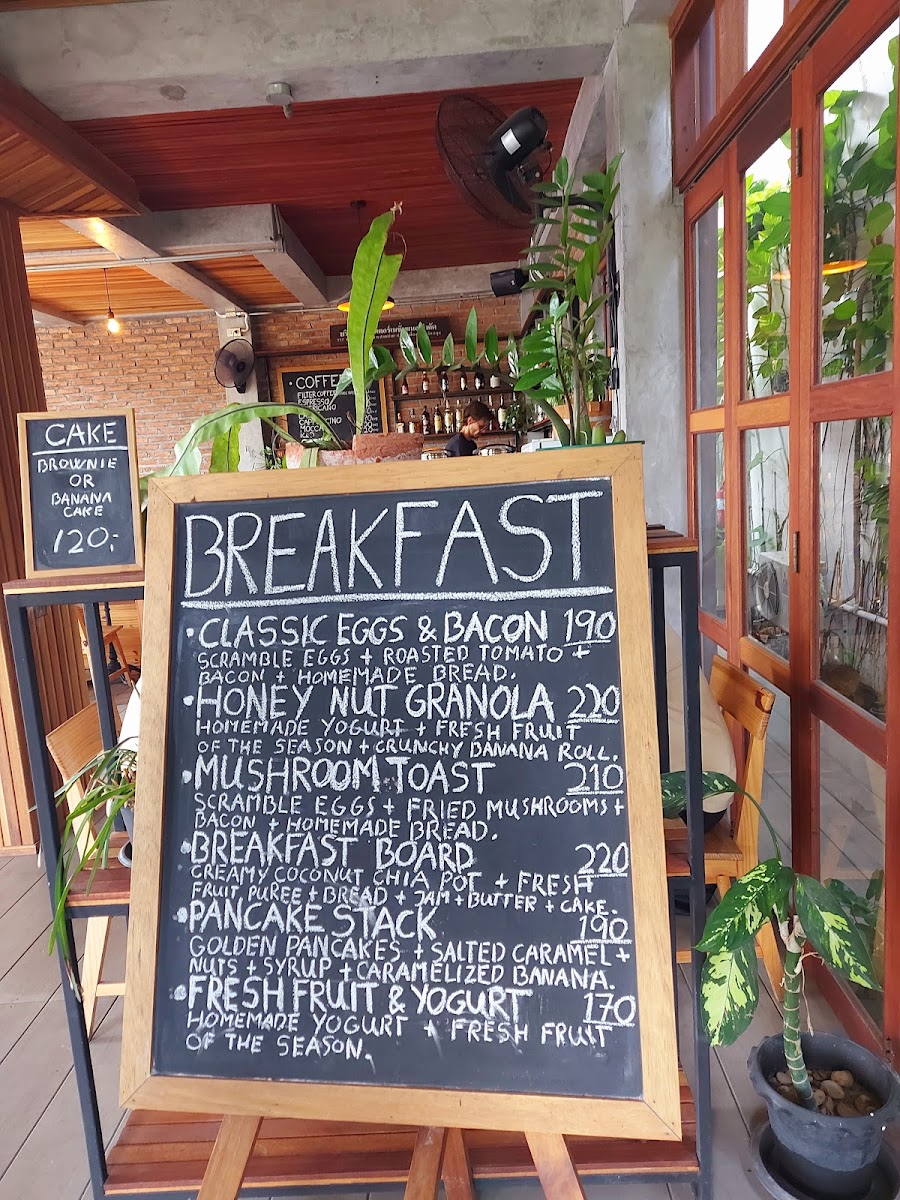 COFFEE
FILTER COFFEE
ESPRESSO
MOCCA
CAKE
BROWNIE
OR
BANANA
CAKE
120,-
BREAKFAST
• CLASSIC EGGS & BACON 190
SCRAMBLE EGGS + ROASTED TOMATO +
BACON + HOMEMADE BREAD.
• HONEY NUT GRANOLA 220
HOMEMADE YOGURT + FRESH FRUIT
OF THE SEASON + CRUNCHY BANANA ROLL.
• MUSHROOM TOAST 210
SCRAMBLE EGGS + FRIED MUSHROOMS +
BACON + HOMEMADE BREAD.
• BREAKFAST BOARD 220
CREAMY COCONUT CHIA POT + FRESH
FRUIT PUREE + BREAD + JAM + BUTTER + CAKE.
• PANCAKE STACK 190
GOLDEN PANCAKES + SALTED CARAMEL +
NUTS + SYRUP + CARAMELIZED BANANA.
• FRESH FRUIT & YOGURT 170
HOMEMADE YOGURT + FRESH FRUIT
OF THE SEASON.